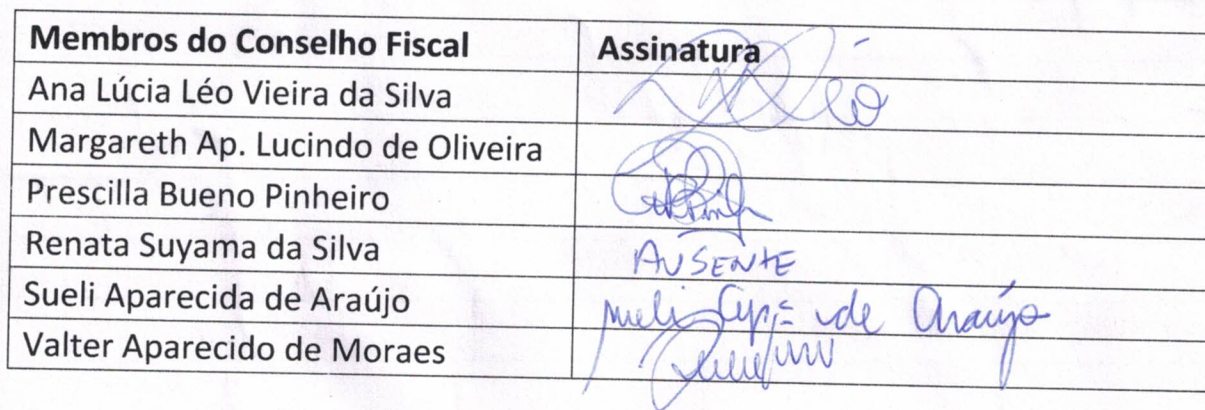 Membros do Conselho Fiscal Assinatura
Ana Lúcia Léo Vieira da Silva Léo
Margareth Ap. Lucindo de Oliveira
Prescilla Bueno Pinheiro
Renata Suyama da Silva AUSENTE
Sueli Aparecida de Araújo Sueli Apª de Araújo
Valter Aparecido de Moraes